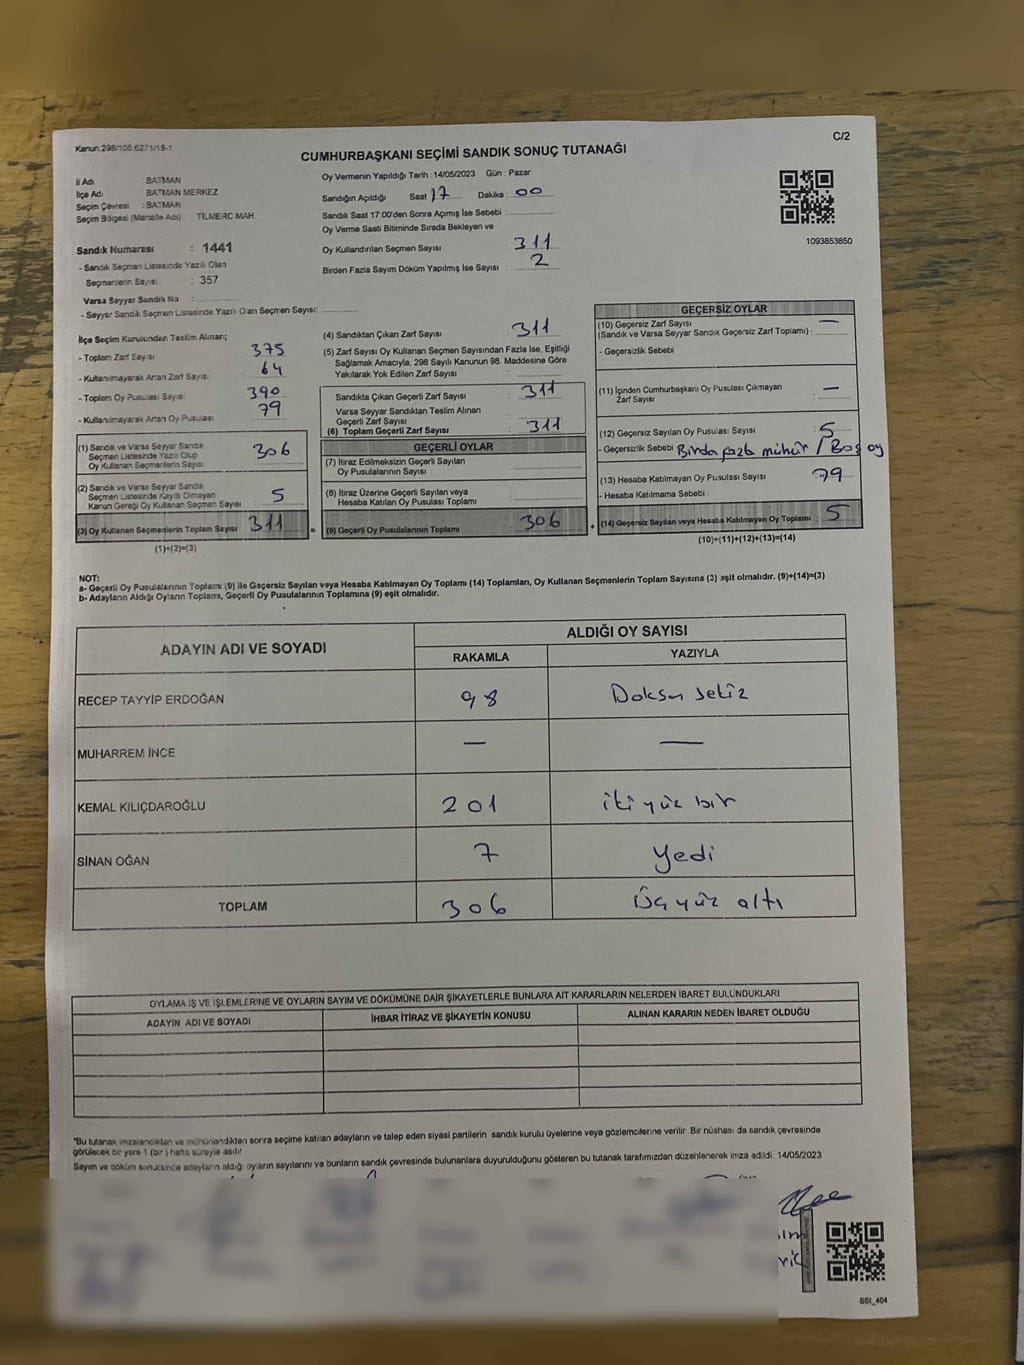 Kanun:298/105 6271/18-1
C/2
CUMHURBAŞKANI SEÇİMİ SANDIK SONUÇ TUTANAĞI
İl Adı : BATMAN
İlçe Adı : BATMAN MERKEZ
Seçim Çevresi : BATMAN
Seçim Bölgesi (Mahalle Adı) : TİLMERC MAH.
Sandık Numarası : 1441
- Sandık Seçmen Listesinde Yazılı Olan
Seçmenlerin Sayısı : 357
Varsa Seyyar Sandık No :
- Seyyar Sandık Seçmen Listesinde Yazılı Olan Seçmen Sayısı:
Oy Vermenin Yapıldığı Tarih : 14/05/2023 Gün : Pazar
Sandığın Açıldığı Saat 17 Dakika : 00
Sandık Saat 17:00'den Sonra Açmış İse Sebebi :
Oy Verme Saati Bitiminde Sırada Bekleyen ve
Oy Kullandırılan Seçmen Sayısı : 311
Birden Fazla Sayım Döküm Yapılmış İse Sayısı : 2
1093853850
İlçe Seçim Kurulundan Teslim Alınan;
- Toplam Zarf Sayısı : 375
- Kullanılmayarak Artan Zarf Sayısı : 64
- Toplam Oy Pusulası Sayısı : 390
- Kullanılmayarak Artan Oy Pusulası : 79
(1) Sandık ve Varsa Seyyar Sandık
Seçmen Listesinde Yazılı Olup
Oy Kullanan Seçmenlerin Sayısı : 306
(2) Sandık ve Varsa Seyyar Sandık
Seçmen Listesinde Kayıtlı Olmayan
Kanun Gereği Oy Kullanan Seçmen Sayısı : 5
(3) Oy Kullanan Seçmenlerin Toplam Sayısı : 311
(1)+(2)=(3)
(4) Sandıktan Çıkan Zarf Sayısı : 311
(5) Zarf Sayısı Oy Kullanan Seçmen Sayısından Fazla İse, Eşitliği
Sağlamak Amacıyla; 298 Sayılı Kanunun 98. Maddesine Göre
Yakılarak Yok Edilen Zarf Sayısı :
Sandıkta Çıkan Geçerli Zarf Sayısı : 311
Varsa Seyyar Sandıktan Teslim Alınan
Geçerli Zarf Sayısı :
(6) Toplam Geçerli Zarf Sayısı : 311
GEÇERLİ OYLAR
(7) İtiraz Edilmeksizin Geçerli Sayılan
Oy Pusulalarının Sayısı :
(8) İtiraz Üzerine Geçerli Sayılan veya
Hesaba Katılan Oy Pusulası Toplamı :
= (9) Geçerli Oy Pusulalarının Toplamı : 306
GEÇERSİZ OYLAR
(10) Geçersiz Zarf Sayısı
(Sandık ve Varsa Seyyar Sandık Geçersiz Zarf Toplamı) : —
- Geçersizlik Sebebi
(11) İçinden Cumhurbaşkanı Oy Pusulası Çıkmayan
Zarf Sayısı : —
(12) Geçersiz Sayılan Oy Pusulası Sayısı : 5
- Geçersizlik Sebebi Birda fazla mühür / Boş oy
(13) Hesaba Katılmayan Oy Pusulası Sayısı : 79
- Hesaba Katılmama Sebebi :
+ (14) Geçersiz Sayılan veya Hesaba Katılmayan Oy Toplamı : 5
(10)+(11)+(12)+(13)=(14)
NOT:
a- Geçerli Oy Pusulalarının Toplamı (9) ile Geçersiz Sayılan veya Hesaba Katılmayan Oy Toplamı (14) Toplamları, Oy Kullanan Seçmenlerin Toplam Sayısına (3) eşit olmalıdır. (9)+(14)=(3)
b- Adayların Aldığı Oyların Toplamı, Geçerli Oy Pusulalarının Toplamına (9) eşit olmalıdır.
ADAYIN ADI VE SOYADI
ALDIĞI OY SAYISI
RAKAMLA YAZIYLA
RECEP TAYYİP ERDOĞAN 98 Doksan sekiz
MUHARREM İNCE — —
KEMAL KILIÇDAROĞLU 201 iki yüz bir
SİNAN OĞAN 7 Yedi
TOPLAM 306 Üç yüz altı
OYLAMA İŞ VE İŞLEMLERİNE VE OYLARIN SAYIM VE DÖKÜMÜNE DAİR ŞİKAYETLERLE BUNLARA AİT KARARLARIN NELERDEN İBARET BULUNDUKLARI
ADAYIN ADI VE SOYADI İHBAR İTİRAZ VE ŞİKAYETİN KONUSU ALINAN KARARIN NEDEN İBARET OLDUĞU
*Bu tutanak imzalandıktan ve mühürlendikten sonra seçime katılan adayların ve talep eden siyasi partilerin sandık kurulu üyelerine veya gözlemcilerine verilir. Bir nüshası da sandık çevresinde
görülecek bir yere 1 (bir) hafta süreyle asılır
Sayım ve döküm sonucunda adayların aldığı oyların sayılarını ve bunların sandık çevresinde bulunanlara duyurulduğunu gösteren bu tutanak tarafımızdan düzenlenerek imza edildi. 14/05/2023
SSI_404